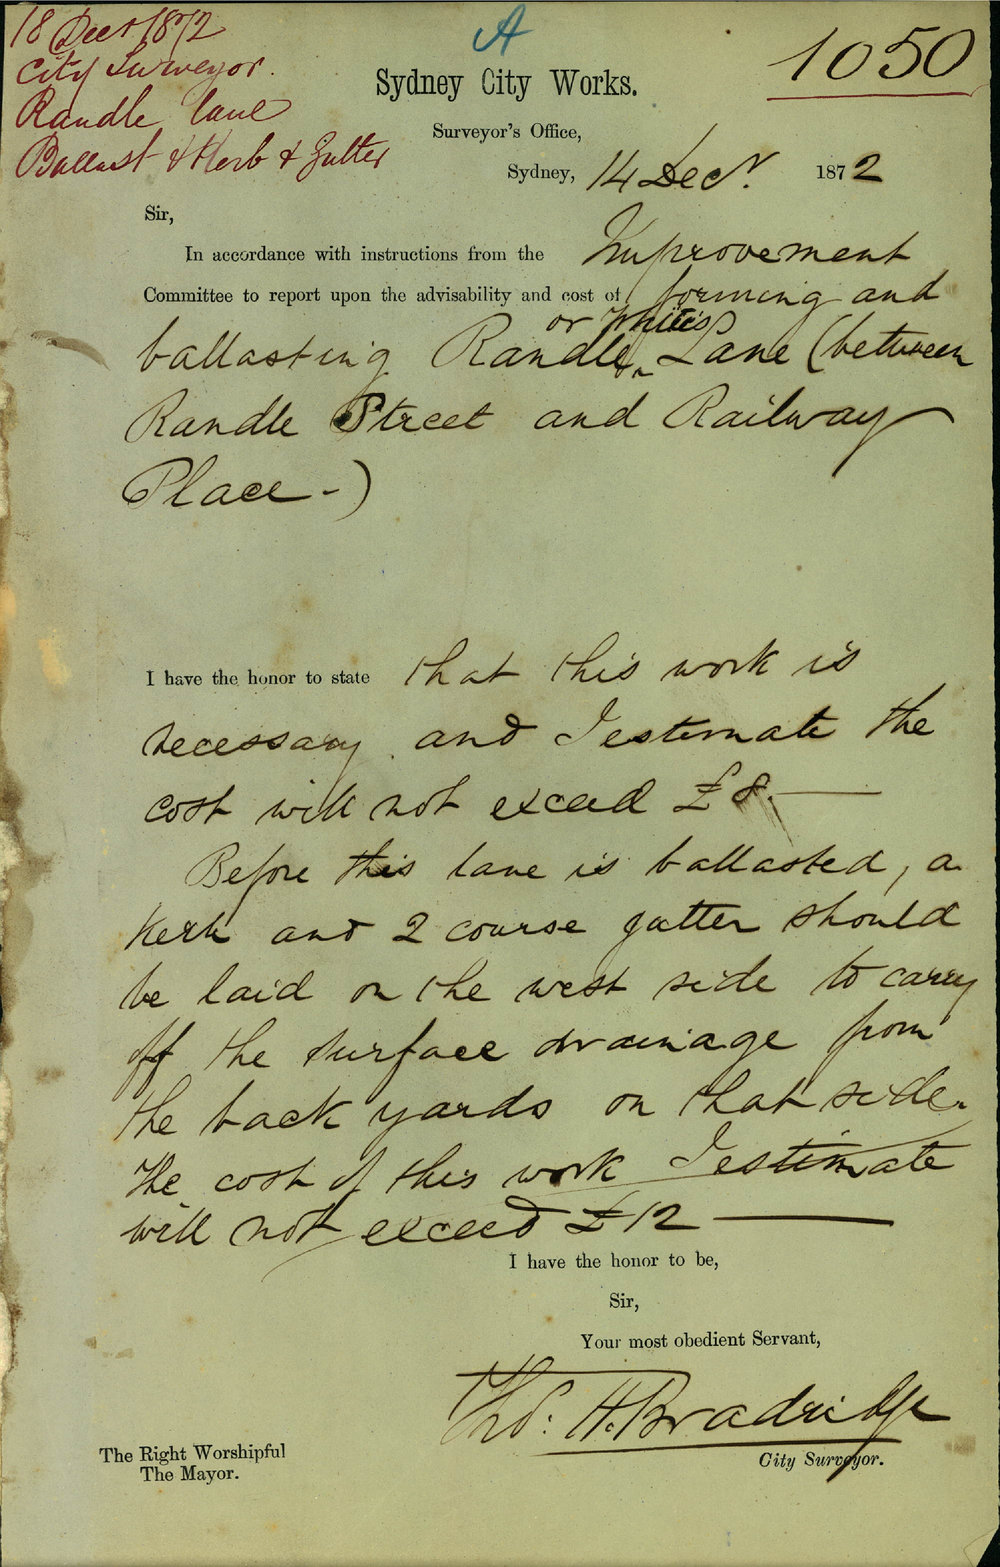 18 Decr 1872
City Surveyor.
Randle lane
Ballast & Kerb & Gutter
A
1050
Sydney City Works.
Surveyor's Office,
Sydney, 14 Decr. 1872
Sir,
In accordance with instructions from the Improvement
Committee to report upon the advisability and cost of forming and
or White's
ballasting Randle Lane (between
Randle Street and Railway
Place-)
I have the honor to state that this work is
necessary and I estimate the
cost will not exceed £8.—
Before this lane is ballasted, a
Kerb and 2 course gutter should
be laid on the west side to carry
off the surface drainage from
the back yards on that side.
The cost of this work I estimate
will not exceed £12 —
I have the honor to be,
Sir,
Your most obedient Servant,
Thos. H. Bradridge
City Surveyor.
The Right Worshipful
The Mayor.